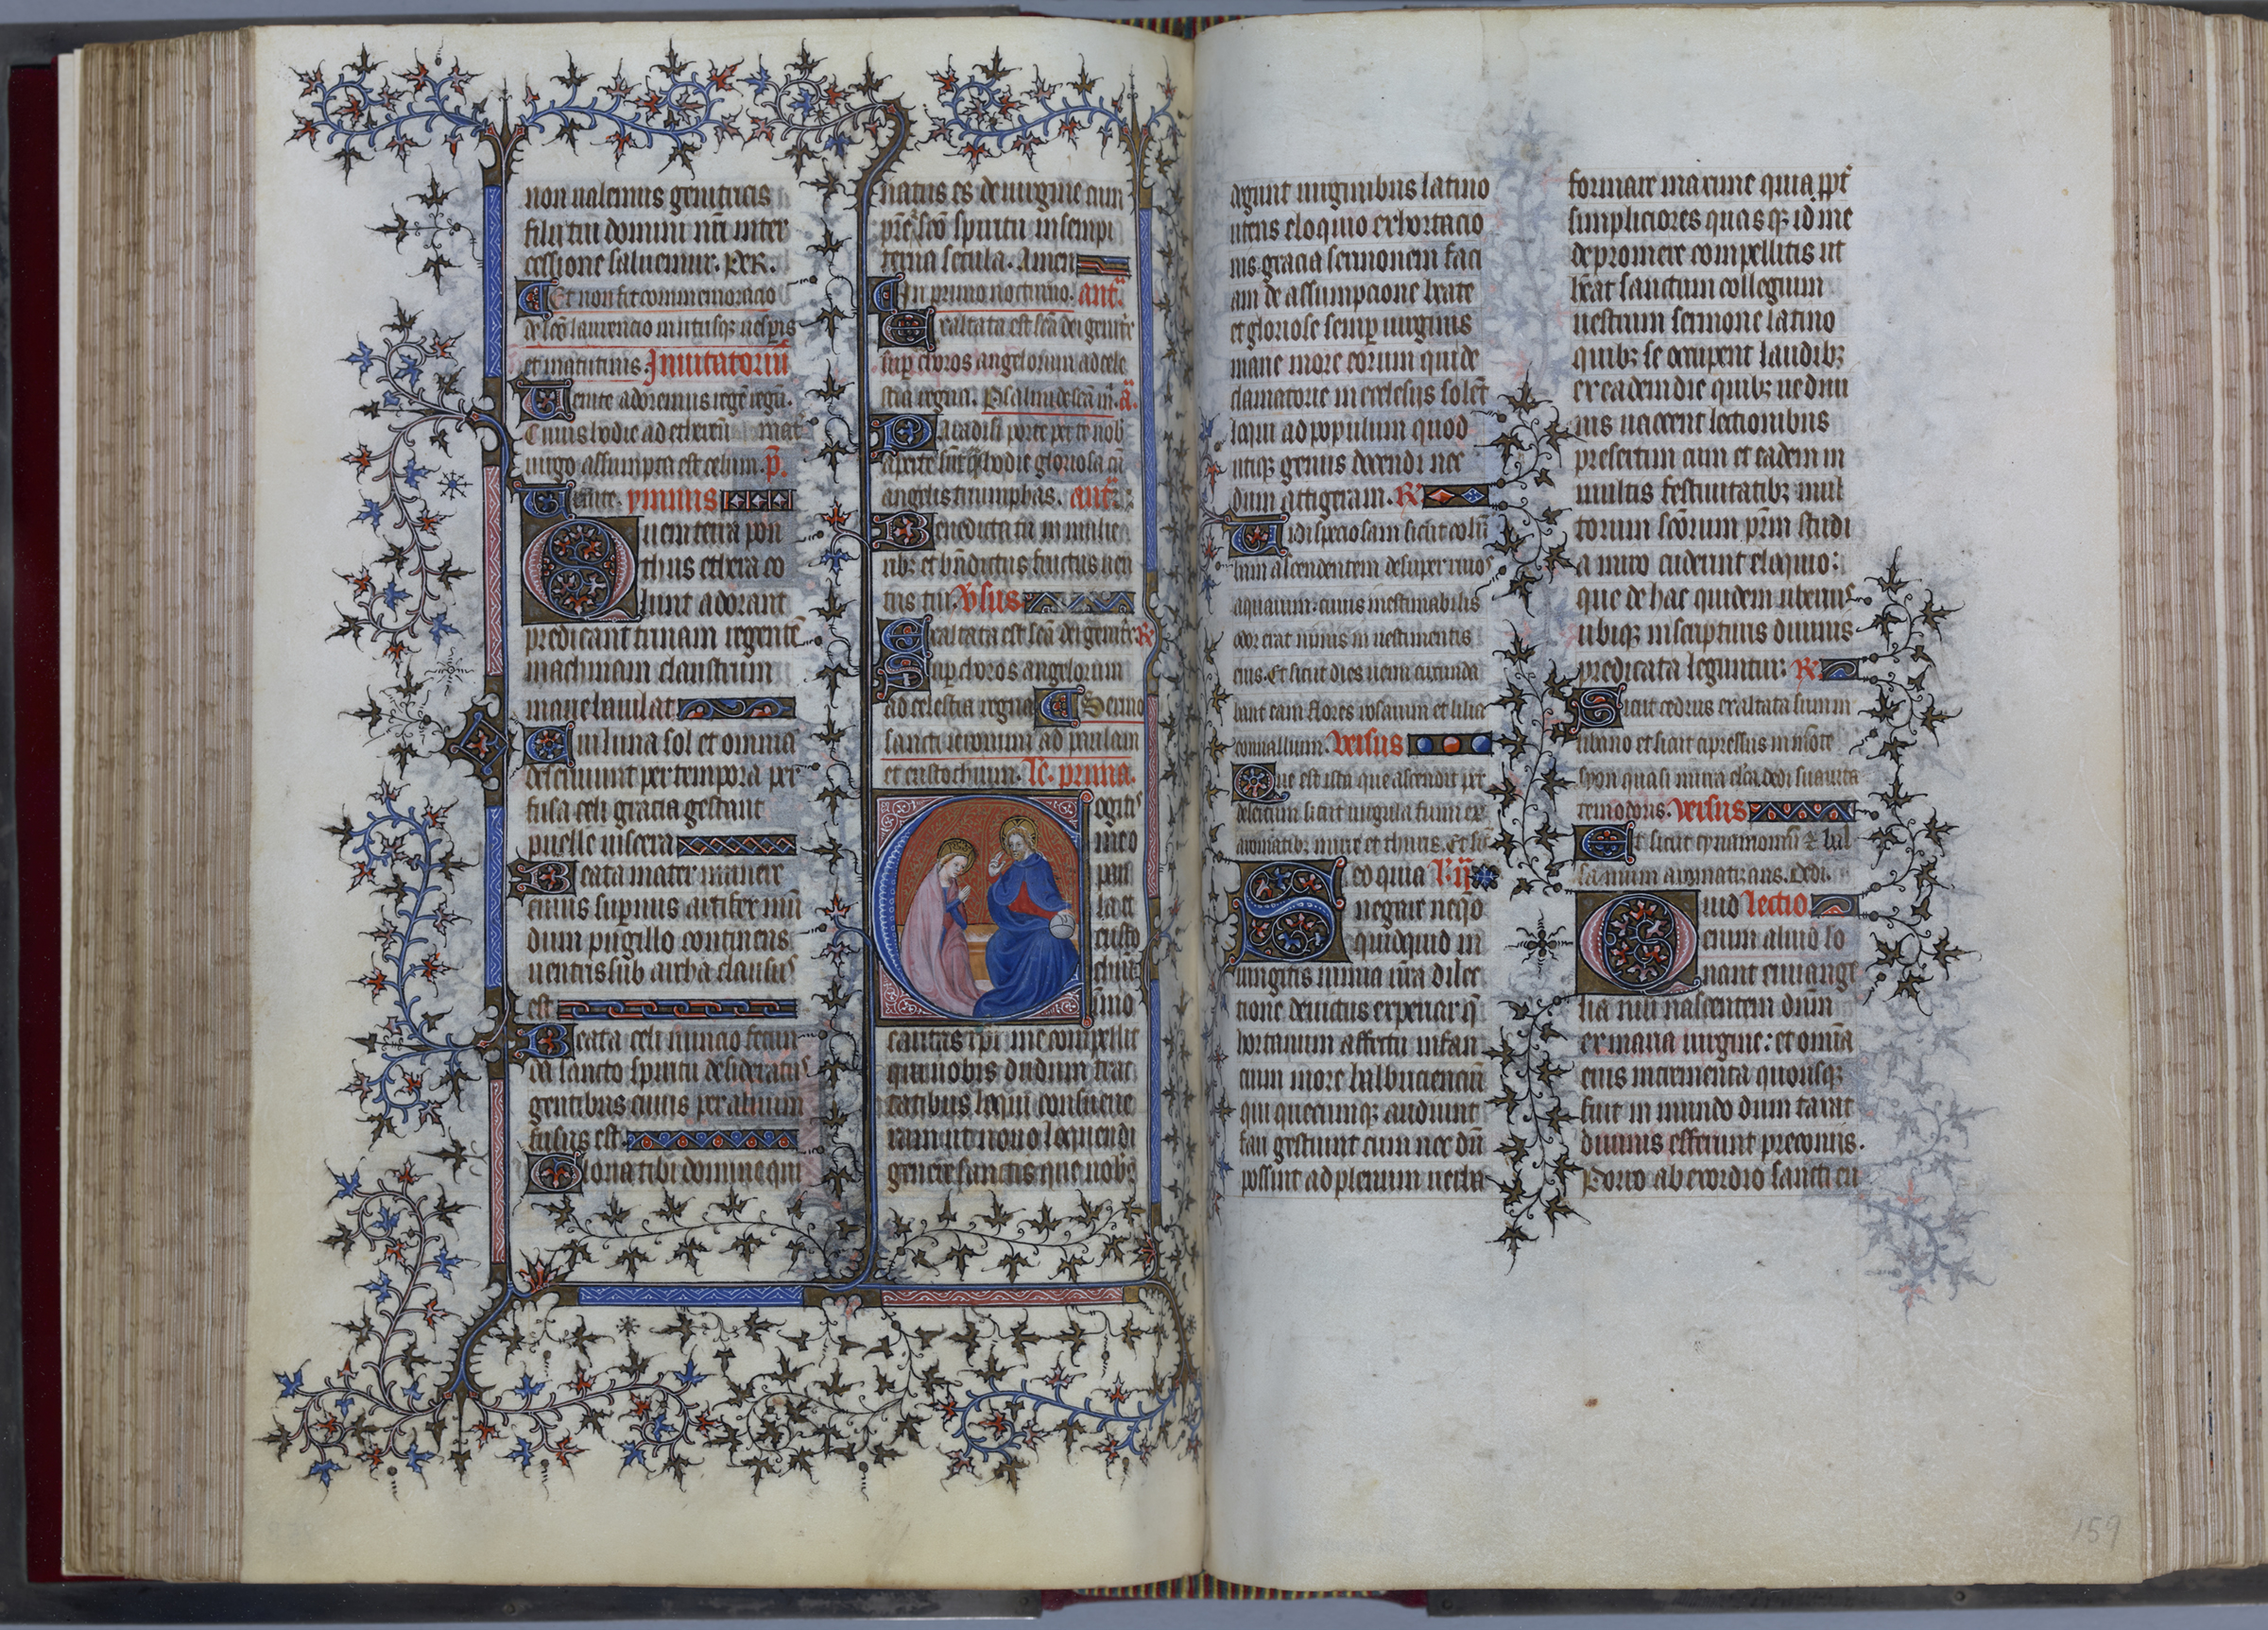 non ualemus genitricis
filij tui domini nr̄i inter
cessione saluemur. PeR.
Et non fit commemoracio
de sc̄o laurencio in utrisqꝫ uesp̄is
et matutinis. Inuitatoriū
Uenite adoremus regē regū.
Cuius hodie ad ethereū mat̄
uirgo assumpta est celum. p̄.
Uenite. ymnus
Quem terra pon
thus ethera co
lunt adorant
predicant trinam regentē
machinam claustrum
marie baiulat
Cui luna sol et omnia
deseruiunt per tempora per
fusa celi gracia gestant
puelle uiscera
Beata mater munere
cuius sup̄nus artifex mū
dum pugillo continens
uentris sub archa clausus
est
Beata celi nuncio fecun
da sancto spiritu desideratus
gentibus cuius per aluum
fusus est
Gloria tibi domine qui
natus es de uirgine cum
pr̄e sc̄o spiritu in sempi
terna secula. Amen
In primo nocturno. ant̄
Exaltata est sc̄a dei genit̄x
sup̄ choros angelorum ad cele
stia regna. Psalmi de sc̄a m̄. a͞.
Paradisi porte per te nob̄
aperte sūt que hodie gloriosa cū
angelis triumphas. ant̄
Benedicta tu in mulie
ribꝫ et bn̄dictus fructus uen
tris tui. V̄sus
Exaltata est sc̄a dei genit̄x R̄
Sup̄ choros angelorum
ad celestia regna Sermo
sancti ieronimi ad paulam
et eustochium. Lc̄. prima.
Cogitis
me o
pau
la et
eusto
chiū
ymmo
caritas xp̄i me compellit
qui uobis dudum trac
tatibus loqui consueue
ram ut nouo loquendi
genere sanctis que uobis
degunt uirginibus latino
utens eloquio exhortacio
nis gracia sermonem faci
am de assumpcione beate
et gloriose semp̄ uirginis
marie more eorum qui de
clamatorie in ecclesijs solēt
loqui ad populum quod
utiqꝫ genus docendi nec
dum attigeram. R̄
Uidi speciosam sicut colū
bam ascendentem desuper riuos
aquarum: cuius inestimabilis
odor erat nimis in uestimentis
eius. Et sicut dies uerni circunda
bant eam flores rosarum et lilia
conuallium. Versus
Que est ista que ascendit per
desertum sicut uirgula fumi ex
aromatibꝫ mirre et thuris. Et sic̄
Sed quia l'ij͞
negare neq̄o
quidquid in
iungitis nimia ur̄a dilec
tione deuictus experiar q̄
hortamini affectu infan
cium more balbuciencium
qui quecumqꝫ audiunt
fari gestiunt cum nec dū
possint ad plenum uerba
formare maxime quia ppt̄
simpliciores quasqꝫ id me
depromere compellitis ut
habeat sanctum collegium
uestrum sermone latino
quibꝫ se occupent laudibꝫ
ex eadem die quibꝫ ue diui
nis uacent lectionibus
presertim cum et eadem in
multis festiuitatibꝫ mul
torum sc̄orum pr̄m studi
a miro cuderunt eloquio:
que de hac quidem uberius
ubiqꝫ in scripturis diuinis
predicata leguntur. R̄
Sicut cedrus exaltata sum in
libano et sicut cipressus in monte
syon quasi mirra electa dedi suauita
tem odoris. Versus
Et sicut cynamomū et bal
samum aromatizans. Dedi.
Quid Lectio
enim aliud so
nant euuange
lia nisi nascentem dūm
ex maria uirgine: et om̄ia
eius incrementa quousqꝫ
fuit in mundo dum taxat
diuinis efferunt preconijs.
Porro ab exordio sancti eu
159